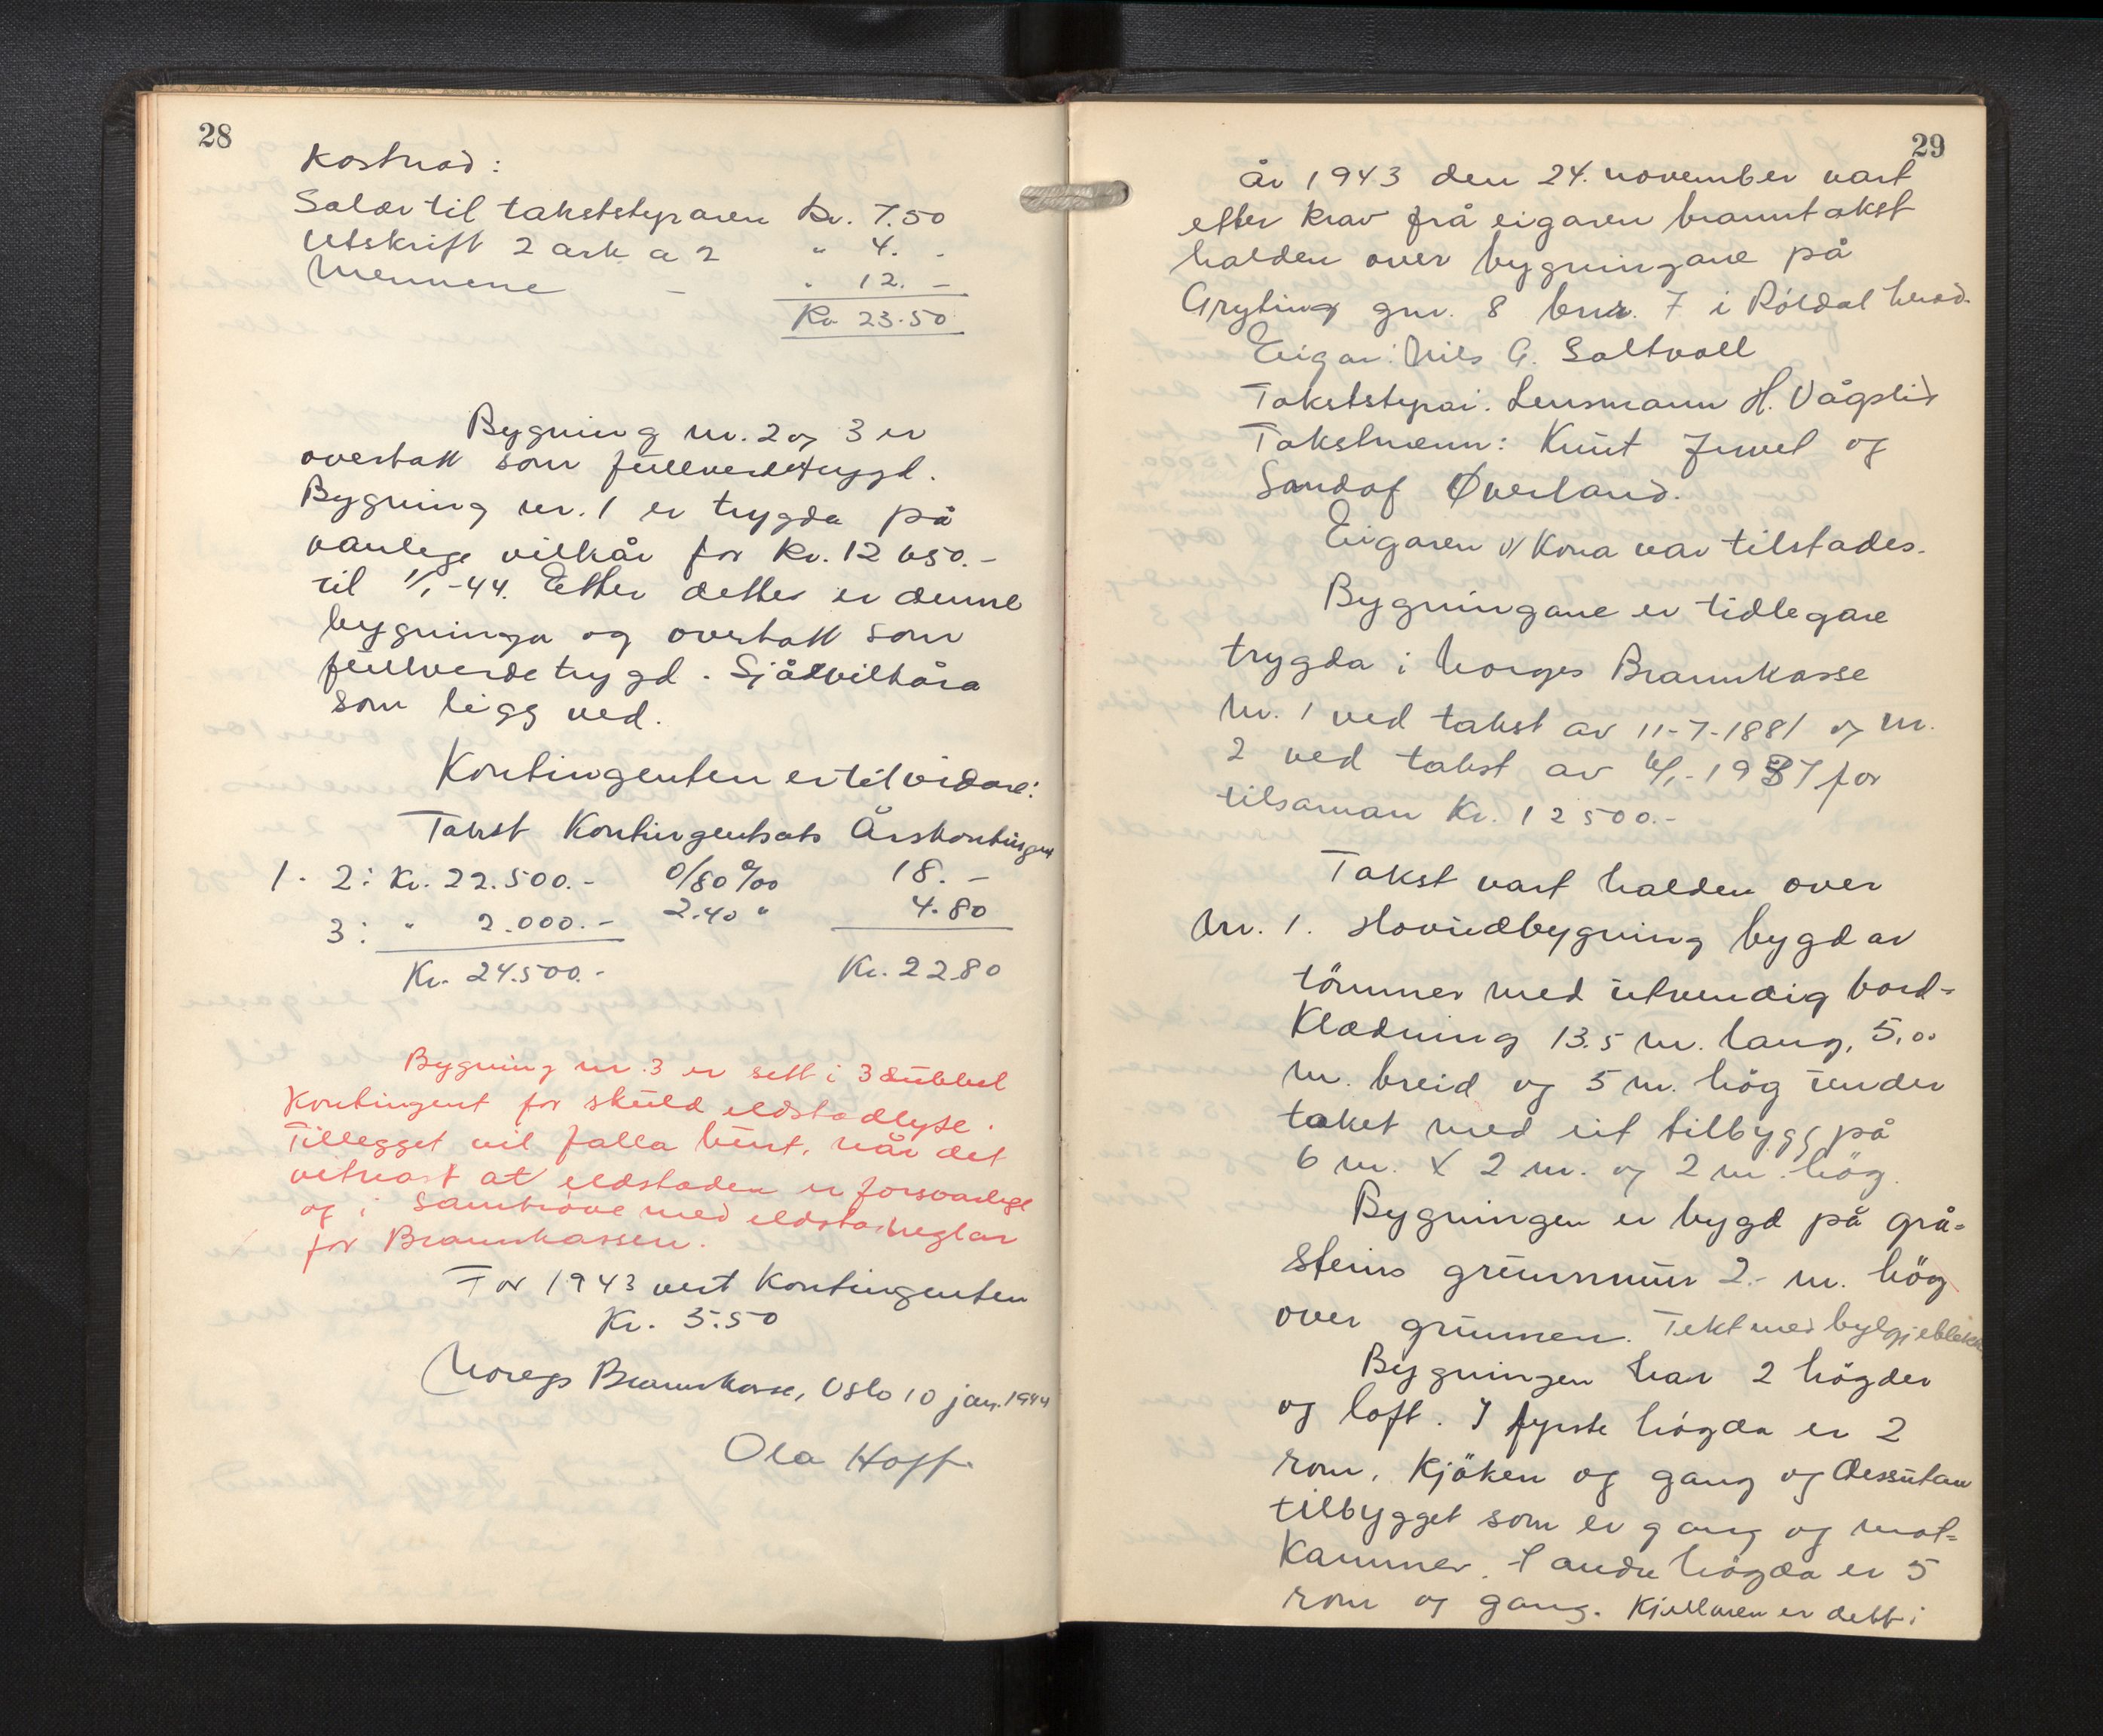 28
Kostnad:
Salær til takststyraren Kr. 7.50
Utskrift 2 ark a 2 " 4. -
Mennene - " 12. -
Kr 23.50
Bygning nr. 2 og 3 er
overtatt som fullverdetrygd.
Bygning nr. 1 er trygda på
vanlege vilkår for Kr. 12 650.-
til 1/1-44. Etter dette er denne
bygninga og overtatt som
fullverdetrygd. Sjå vilkåra
som ligg ved.
Kontingenten er til vidare:
Takst Kontingentsats Årskontingent
1. 2: Kr. 22.500.- 0/80 ‰ 18. -
3: " 2.000.- 2.40 " 4.80
Kr. 24.500.- Kr. 22.80
Bygning nr. 3 er sett i 3 dubbel
Kontingent for skuld eldstadlyte.
Tillegget vil falla burt, når det
vitnast at eldstaden er forsvarlege
og i samhøve med eldstadreglar
for Brannkassen.
For 1943 vert Kontingenten
Kr. 5.50
Noregs Brannkasse, Oslo 10 jan. 1944
Ola Hoff
29
År 1943 den 24. november vart
etter krav frå eigaren branntakst
halden over bygningane på
Gryting gnr. 8 bnr. 7 i Røldal herad.
Eigar: Nils G. Saltvoll
Takststyrar: Lensmann H. Vågslid
Takstmenn: Knut Juvet og
Sandof Øverland.
Eigaren v/ Kona var tilstades.
Bygningane er tidlegare
trygda i Norges Brannkasse
Nr. 1 ved takst av 11-7-1881 og nr.
2 ved takst av 1937 for
tilsaman Kr. 12500.-
Takst vart halden over
Nr. 1. Hovudbygning bygd av
tömmer med utvendig bord-
Klædning 13.5 m. lang, 5,00
m. breid og 5 m. hög under
taket med eit tilbygg på
6 m. x 2 m. og 2 m. hög.
Bygningen er bygd på grå-
steins grunnmur 2.- m. hög
over grunnen. Tekt med bylgjeblekk
Bygningen har 2 högder
og loft. I fyrste högda er 2
rom, Kjöken og gang og dessutan
tilbygget som er gang og mat-
Kammer. I andre högda er 5
rom og gang. Kjellaren er delt i